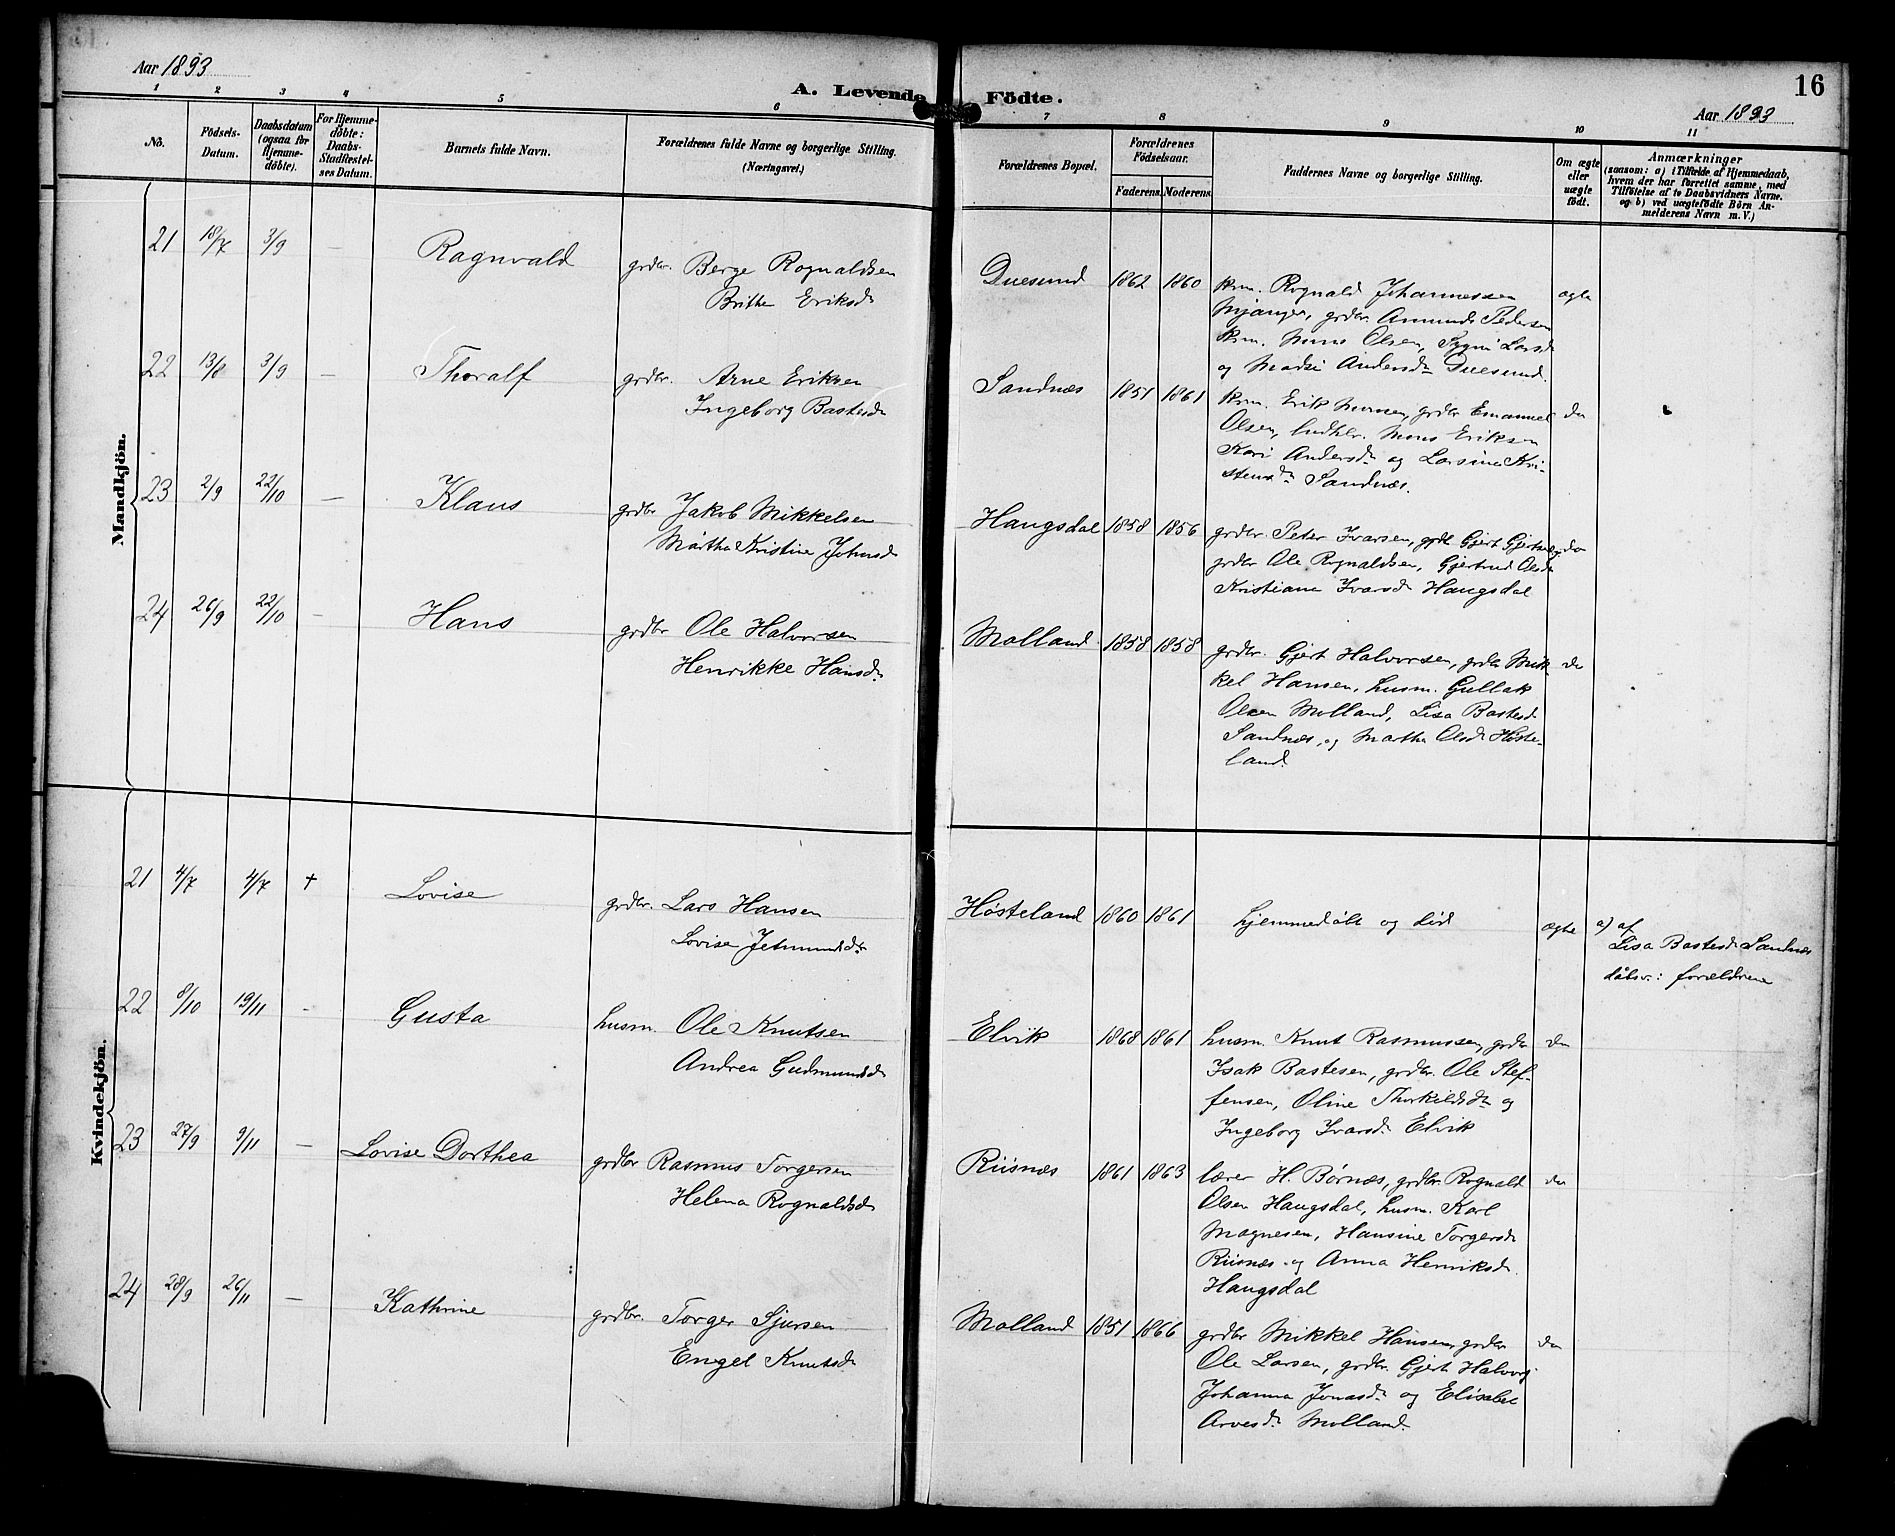 Aar 1893
A. Levende Födte.
16
Aar 1893
1 2 3 4 5 6 7 8 9 10 11
No.
Födsels-Datum.
Daabsdatum (ogsaa for Hjemme-döbte).
For Hjemme-döbte: Daabs-Stadfæstel-ses Datum.
Barnets fulde Navn.
Forældrenes fulde Navne og borgerlige Stilling.
(Næringsvei.)
Forældrenes Bopæl.
Forældrenes Födselsaar.
Faderens. Moderens.
Faddernes Navne og borgerlige Stilling.
Om ægte eller uægte födt.
Anmærkninger
(saasom: a) i Tilfælde af Hjemmedaab,
hvem der har forrettet samme, med
Tilföielse af to Daabsvidners Navne.
og b) ved uægtefödte Börn An-
melderens Navn m. V.)
Mandkjön.
21 18/7 3/9 — Ragnvald
grdbr. Berge Rognaldsen
Brithe Eriksdr
Duesund 1862 1860
krm. Rognald Johannessen
Mjanger, grdbr. Amund Pedersen
krm. Mons Olsen, Larsdr
og Andersdr Duesund.
ægte
22 13/8 3/9 — Thoralf
grdbr. Arne Eriksen
Ingeborg Bastesdr
Sandnæs 1851 1861
krm. Erik Monsen, grdbr Emanuel
Olsen, Mons Eriksen
Kari Andersdr og Larsine Kri-
stensdr Sandnæs.
do
23 2/9 22/10 — Klaus
grdbr Jakob Mikkelsen
Martha Kristine Johnsdr
Haugsdal 1858 1856
grdbr. Peter Ivarsen, Gjert Gjertsen,
grdbr Ole Rognaldsen, Gjertrud Olsdr
Kristiane Ivarsdr Haugsdal
do
24 26/9 22/10 — Hans
grdbr Ole Halvorsen
Henrikke Hansdr
Molland 1858 1858
grdbr. Gjert Halvorsen, grdbr Mik-
kel Hansen, husm. Gullak
Olsen Molland, Lisa Bastesdr
Sandnæs, og Martha Olsdr Høste-
land.
do
Kvindekjön.
21 4/7 4/7 † Lovise
grdbr. Lars Hansen
Lovise Jetmundsdr
Høsteland 1860 1861
hjemmedøbt og død
ægte
a) af
Lisa Bastesdr Sandnæs
dåbsv.: forældrene
22 8/10 19/11 — Gusta
husm. Ole Knutsen
Andrea Gudmundsdr
Elvik 1868 1861
husm. Knut Rasmussen, grdbr
Isak Bastesen, grdbr. Ole Stef-
fensen, Oline Thorkildsdr og
Ingeborg Ivarsdr Elvik
do
23 27/9 9/11 — Lovise Dorthea
grdbr Rasmus Torgersen
Helena Rognaldsdr
Riisnæs 1861 1863
lærer H. Børnæs, grdbr. Rognald
Olsen Haugsdal, husm. Karl
Magnesen, Hansine Torgersdr
Riisnæs og Anna Henriksdr
Haugsdal
do
24 28/9 26/11 — Kathrine
grdbr. Torger Sjursen
Engel Knutsdr
Molland 1851 1866
grdbr Mikkel Hansen, grdbr
Ole Larsen, grdbr. Gjert Halvors
Johanna Jonasdr og Elisabet
Arnesdr Molland.
do